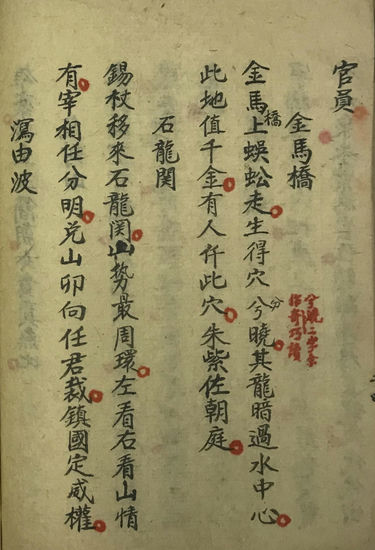 官員
金馬橋
金馬橋上蜈蚣走生得穴分兮曉其龍暗過水中心
此地值千金有人仟此穴朱紫佐朝庭
石龍関
錫杖移來石龍関山勢最周環左看右看山情
有宰相任分明兑山卯向任君裁鎮國定威權
瀉由波